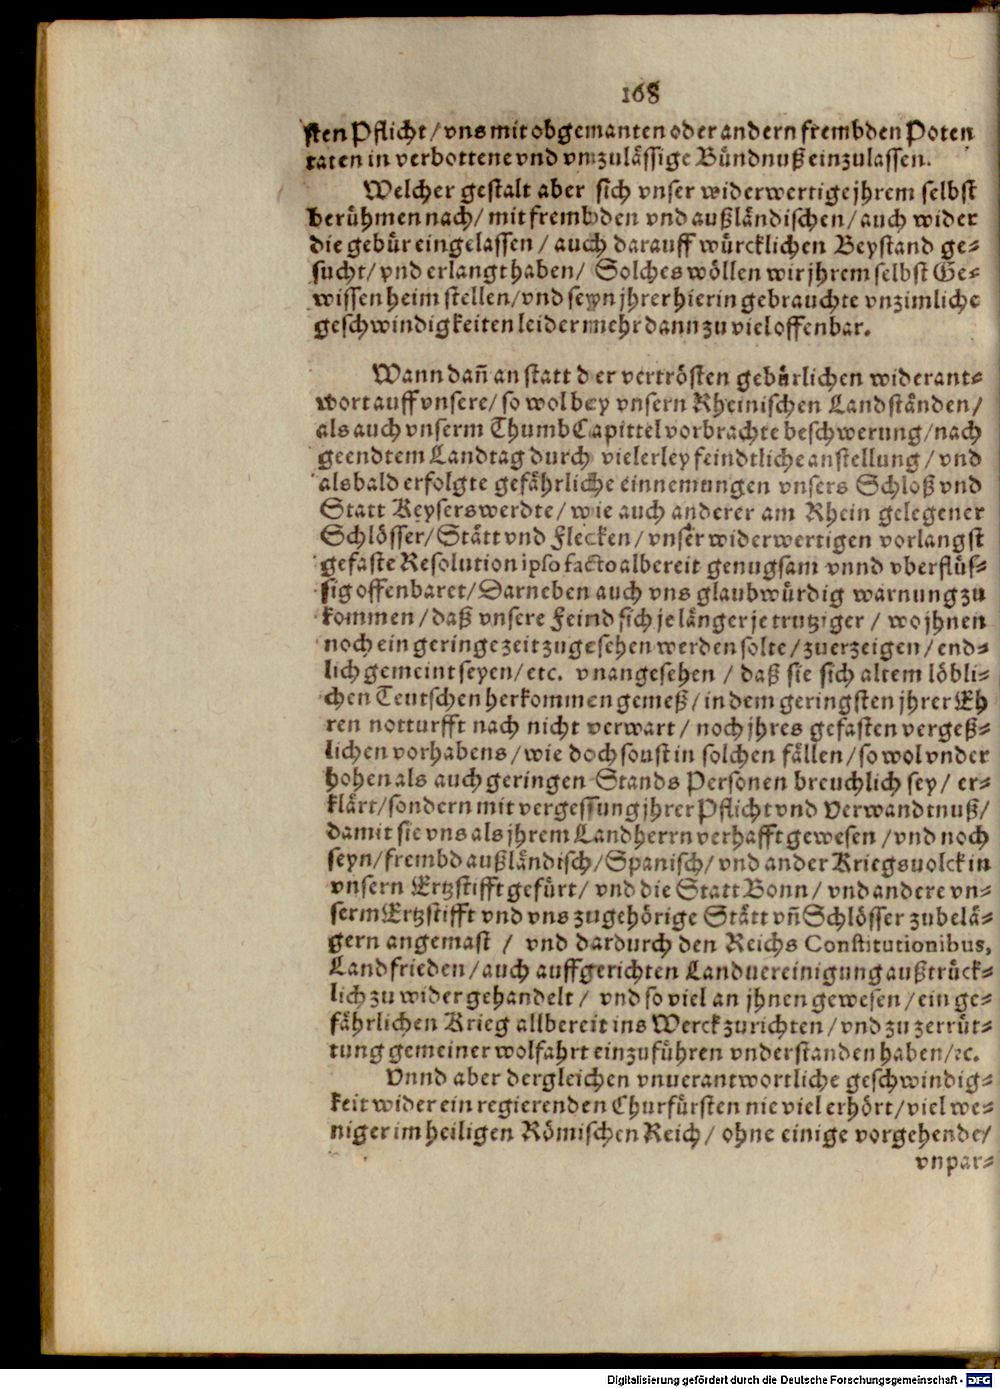 168
sten Pflicht/ vns mit obgemanten oder andern frembden Poten
taten in verbottene vnd vnzulässige Bündnuß einzulassen.
Welcher gestalt aber sich vnser widerwertige jhrem selbst
berühmen nach/ mit frembden vnd außländischen/ auch wider
die gebür eingelassen/ auch darauff würcklichen Beystand ge-
sucht/ vnd erlangt haben/ Solches wöllen wir jhrem selbst Ge-
wissen heim stellen/ vnd seyn jhrer hierin gebrauchte vnzimliche
geschwindigkeiten leider mehr dann zu viel offenbar.
Wann dañ an statt der vertrösten gebürlichen widerant-
wort auff vnsere/ so wol bey vnsern Rheinischen Landständen/
als auch vnserm Thumb Capittel vorbrachte beschwerung/ nach
geendtem Landtag durch vielerley feindtliche anstellung/ vnd
alsbald erfolgte gefährliche einnemungen vnsers Schloß vnd
Statt Keyserswerdte/ wie auch anderer am Rhein gelegener
Schlösser/ Stätt vnd Flecken/ vnser widerwertigen vorlangst
gefaste Resolution ipso facto albereit genugsam vnnd vberflüs-
sig offenbaret/ Darneben auch vns glaubwürdig warnung zu
kommen/ daß vnsere Feind sich je länger je trutziger/ wo jhnen
noch ein geringe zeit zugesehen werden solte/ zuerzeigen/ end-
lich gemeint seyen/ etc. vnangesehen/ daß sie sich altem löbli-
chen Teutschen herkommen gemeß/ in dem geringsten jhrer Eh
ren notturfft nach nicht verwart/ noch jhres gefasten vergeß-
lichen vorhabens/ wie doch sonst in solchen fällen/ so wol vnder
hohen als auch geringen Stands Personen breuchlich sey/ er-
klärt/ sondern mit vergessung jhrer Pflicht vnd Verwandtnuß/
damit sie vns als jhrem Landherrn verhafft gewesen/ vnd noch
seyn/ frembd außländisch/ Spanisch/ vnd ander Kriegsuolck in
vnsern Ertzstifft gefürt/ vnd die Statt Bonn/ vnd andere vn-
serm Ertzstifft vnd vns zugehörige Stätt vñ Schlösser zubelä-
gern angemast/ vnd dardurch den Reichs Constitutionibus,
Landfrieden/ auch auffgerichten Landuereinigung außtrück-
lich zu wider gehandelt/ vnd so viel an jhnen gewesen/ ein ge-
fährlichen Krieg allbereit ins Werck zurichten/ vnd zu zerrüt-
tung gemeiner wolfahrt einzuführen vnderstanden haben/ ꝛc.
Vnnd aber dergleichen vnuerantwortliche geschwindig-
keit wider ein regierenden Churfürsten nie viel erhört/ viel we-
niger im heiligen Römischen Reich/ ohne einige vorgehende/
vnpar-
Digitalisierung gefördert durch die Deutsche Forschungsgemeinschaft - DFG